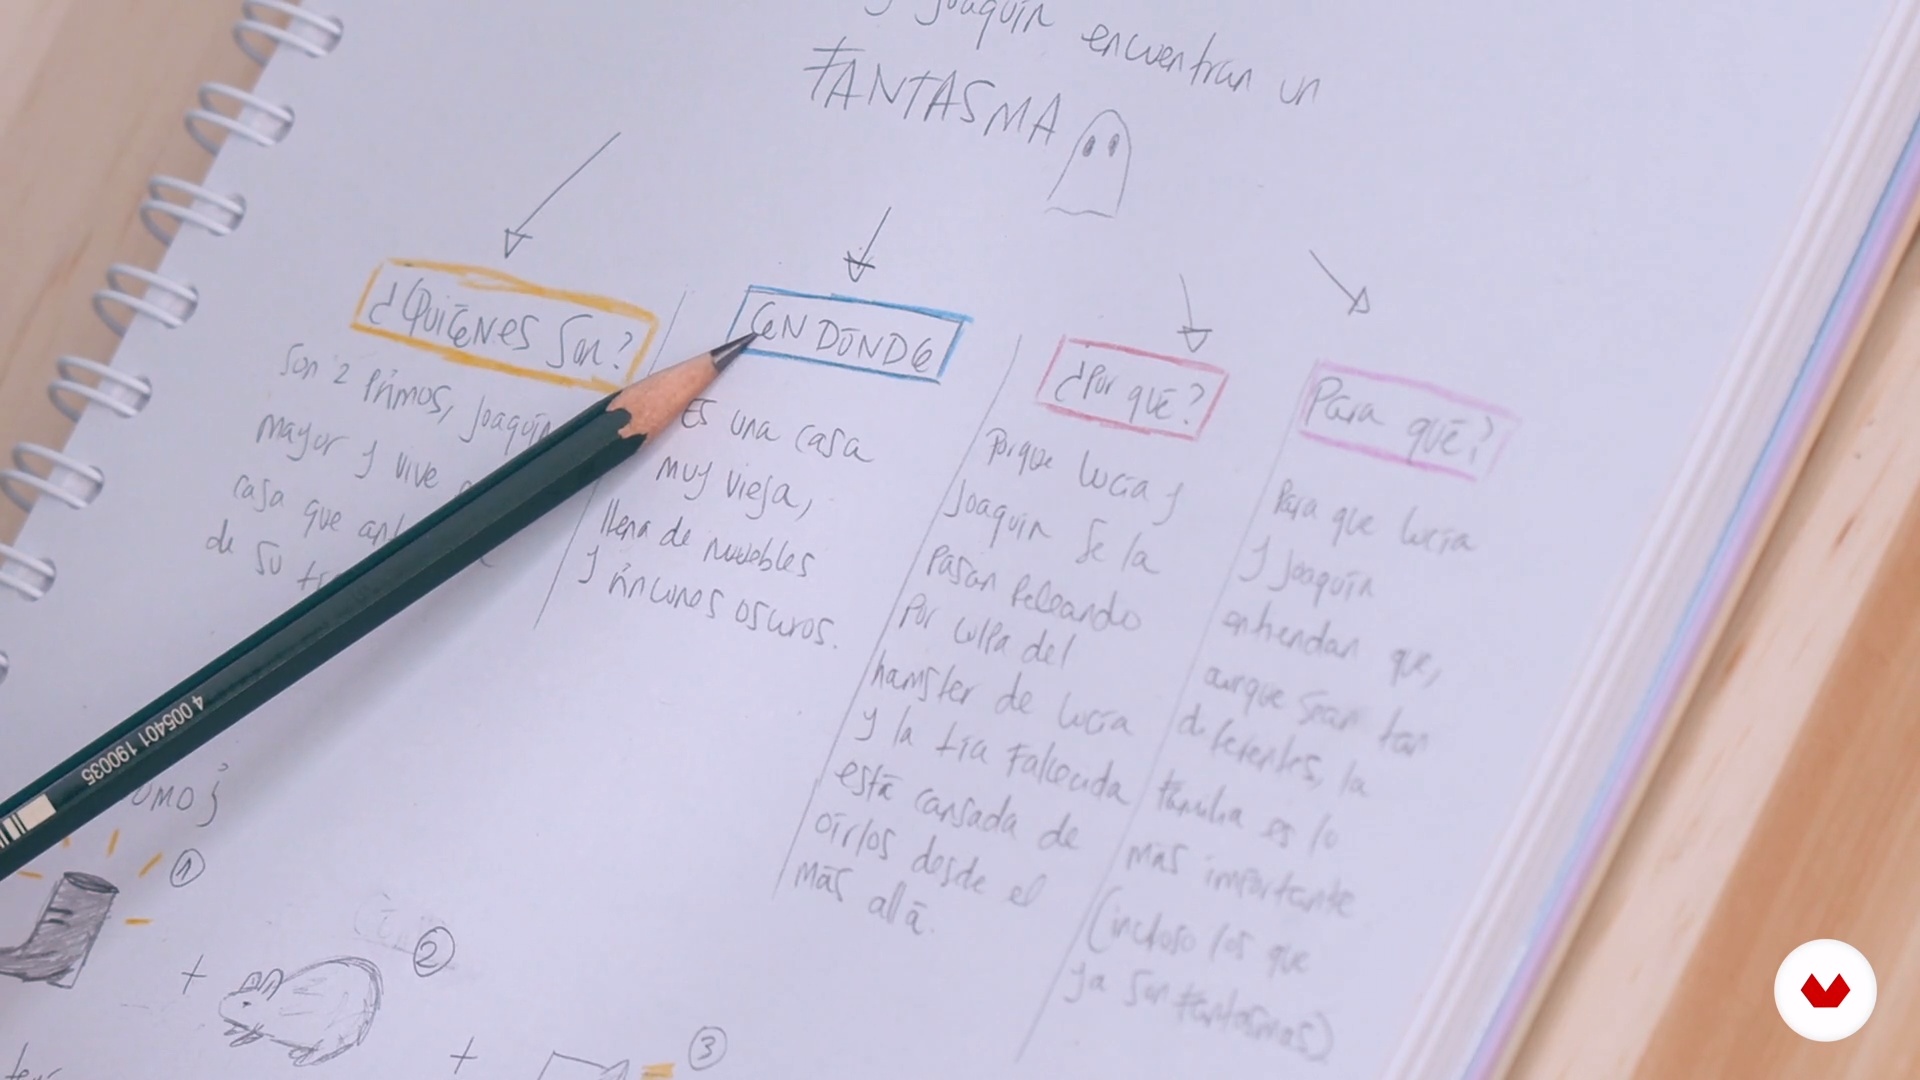 y Joaquín encuentran un
FANTASMA
¿Quiénes son?
Son 2 primos, Joaquín
mayor y vive
casa que ant
de su
EN DÓNDE
Es una casa
muy vieja,
llena de muebles
y rincones oscuros.
¿Por qué?
Porque Lucía y
Joaquín se la
pasan peleando
por culpa del
hamster de Lucía
y la tía fallecida
está cansada de
oírlos desde el
más allá.
Para qué?
Para que Lucía
y Joaquín
entiendan que,
aunque sean tan
diferentes, la
familia es lo
más importante
(incluso los que
ya son fantasmas)
4 005401 190035
1
+
2
+
3